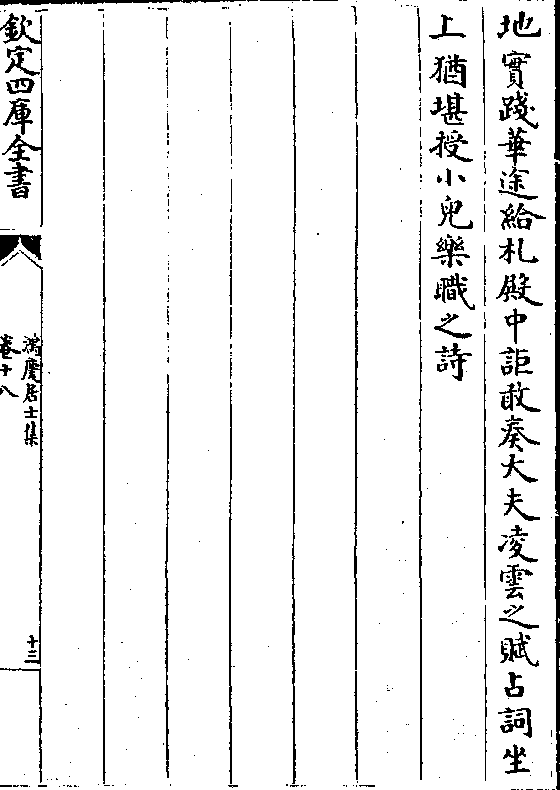 地實踐華途給札殿中詎敢奏大夫凌雲之賦占詞坐
上猶堪授小兒樂職之詩
欽定四庫全書
鴻慶居士集
卷十八
十三